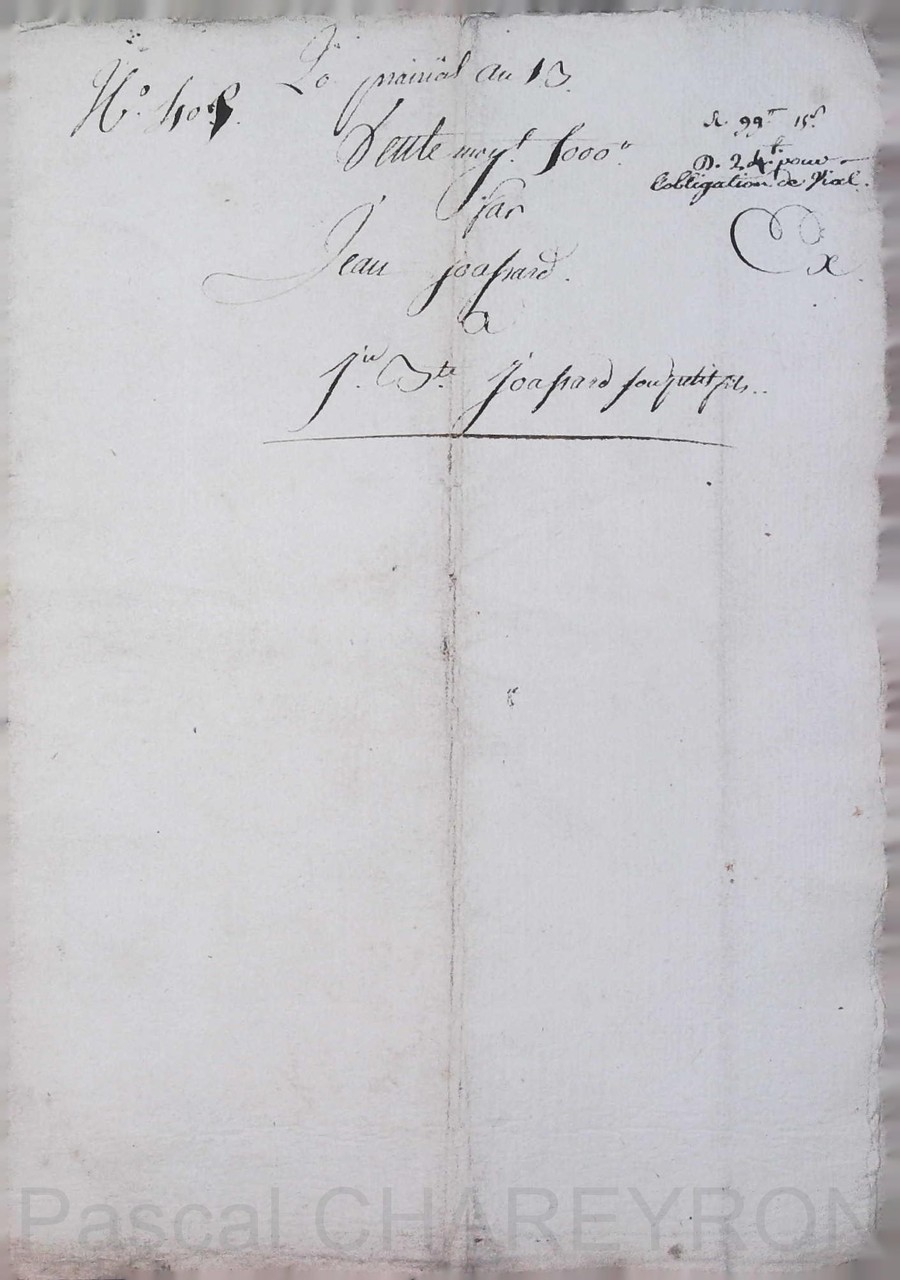 N.° 405.
20 prairial an 13.
Vente moy.t 5000tt
par
Jean Joassard.
a
J.n B.te Joassard son petit fils..
R. 99tt 15s
D. 24tt pour
l'obligation de Vial.
Ex
Pascal CHAREYRON